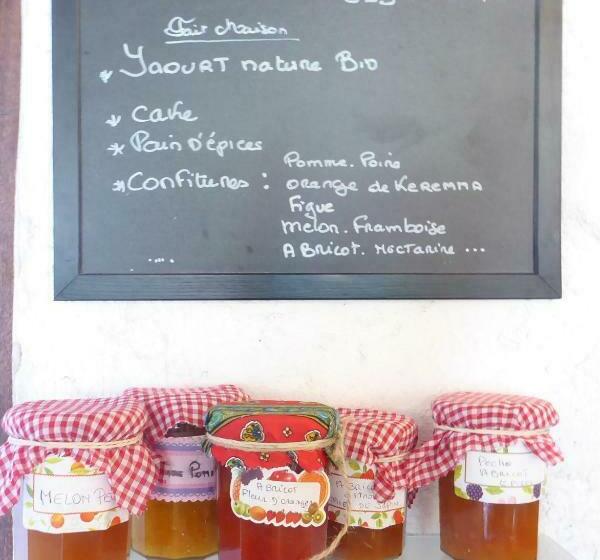 Fait Maison
* YAOURT nature Bio
* Cake
* Pain D'épices
* Confitures : Pomme. Poire
orange de KEREMMA
Figue
Melon. Framboise
ABRICOT. NECTARINE ...
....
MELON
ABRICOT
Fleur d'oranger
Pêche
ABRICOT